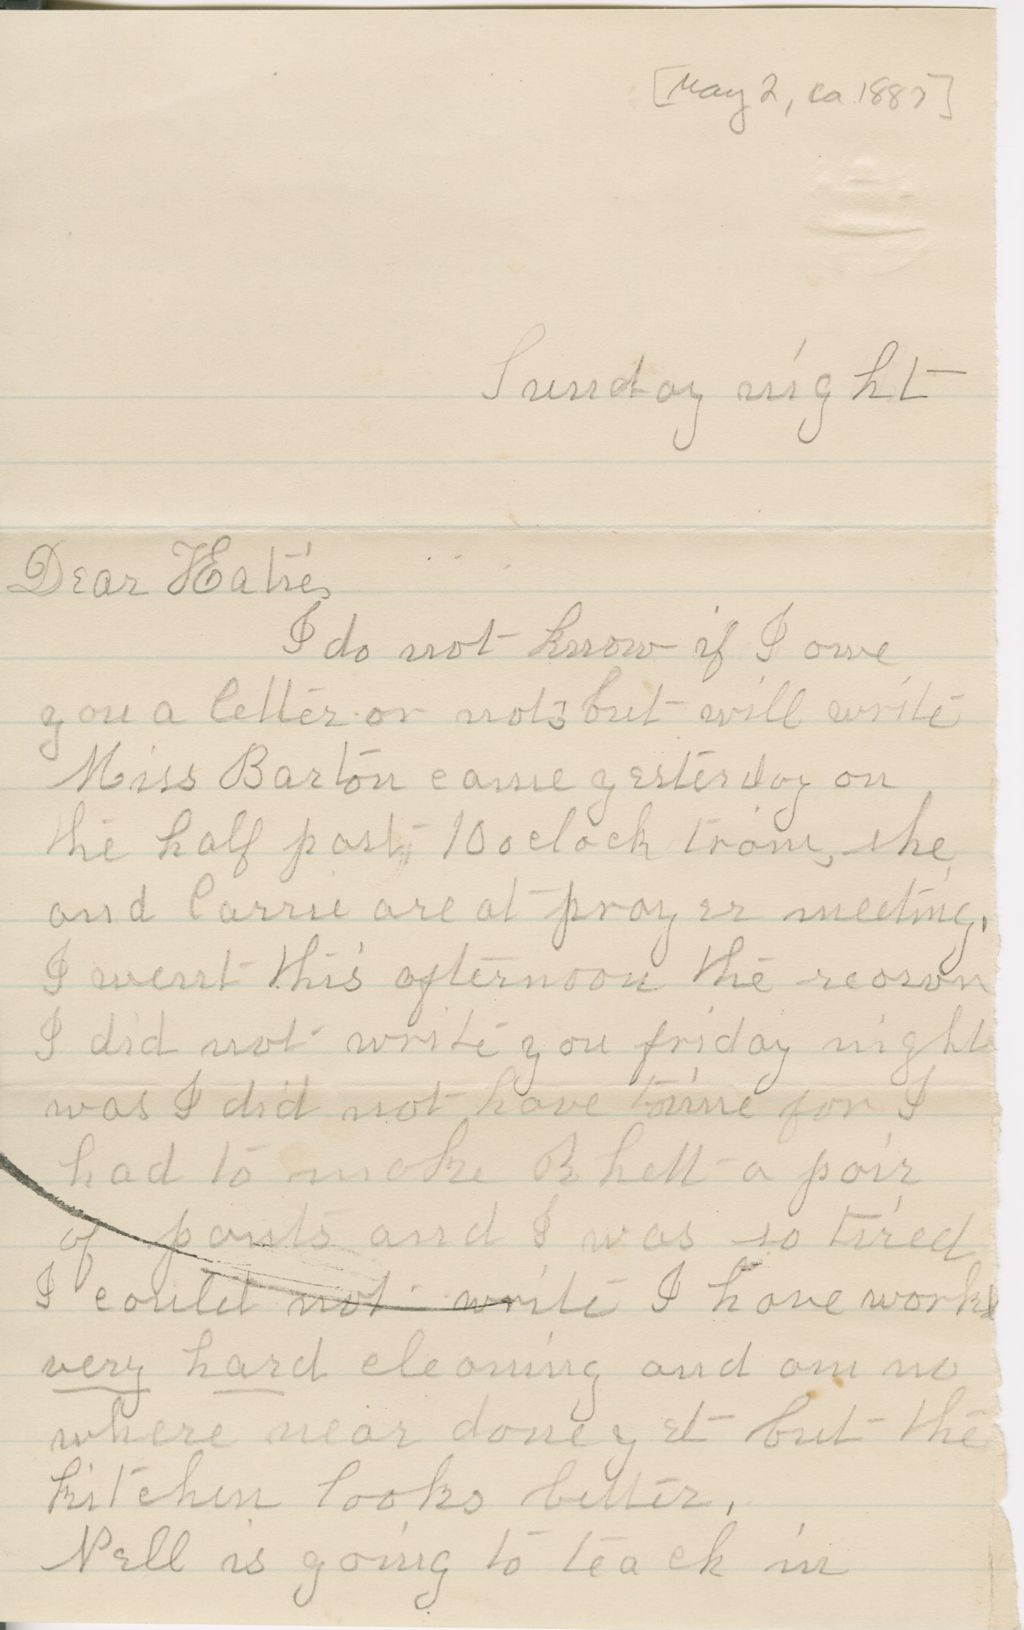 [May 2, ca 1887]
Sunday night
Dear Hatie,
I do not know if I owe
you a letter or not but will write
Miss Barton came yesterday on
the half past 10 oclock train, she
and Carrie are at prayer meeting.
I went this afternoon the reason
I did not write you friday night
was I did not have time for I
had to make Rhett a pair
of pants and I was so tired
I could not write I have work
very hard cleaning and am no
where near done yet but the
kitchen looks better.
Nell is going to teach in